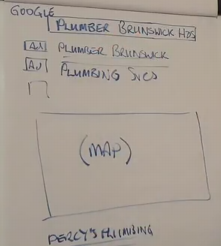 GOOGLE
PLUMBER BRUNSWICK HDS
Ad PLUMBER BRUNSWICK
Ad PLUMBING SVCS
(MAP)
PERCY'S PLUMBING